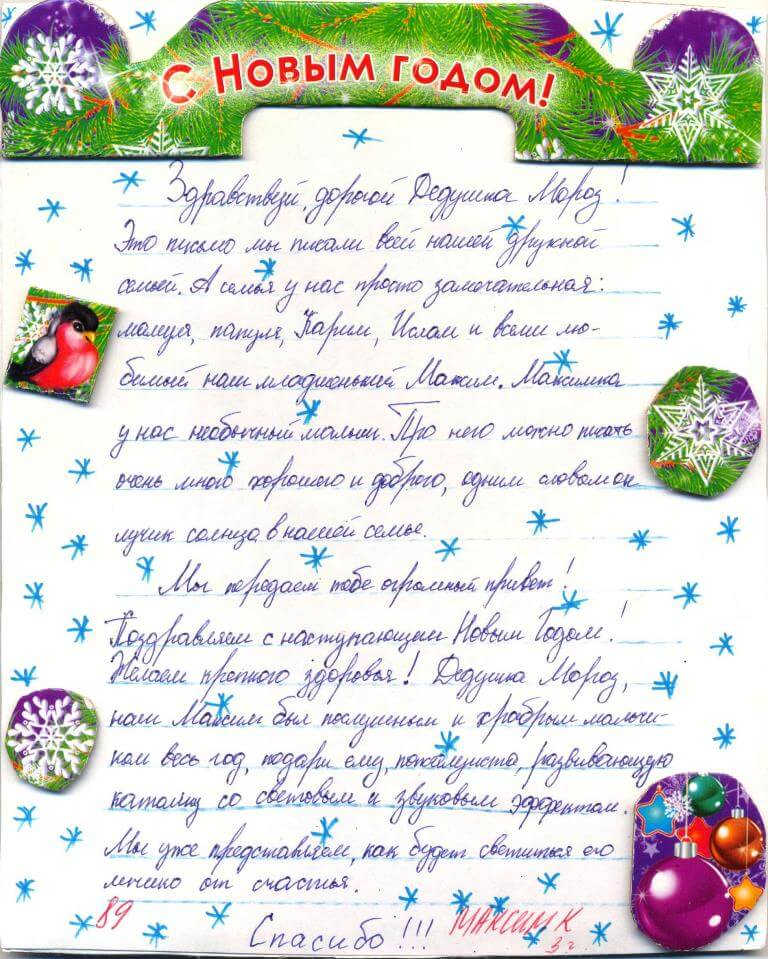 С Новым годом!
Здравствуй, дорогой Дедушка Мороз!
Это письмо мы писали всей нашей дружной
семьей. А семья у нас просто замечательная:
мамуля, папуля, Карим, Ислам и всеми лю-
бимый наш младшенький Максим. Максимка
у нас необычный малыш. Про него можно писать
очень много хорошего и доброго, одним словом он
лучик солнца в нашей семье.
Мы передаем тебе огромный привет!
Поздравляем с наступающим Новым Годом!
Желаем крепкого здоровья! Дедушка Мороз,
наш Максим был послушным и храбрым мальчи-
ком весь год, подари ему, пожалуйста, развивающую
каталку со световым и звуковым эффектом.
Мы уже представляем, как будет светиться его
личико от счастья.
89
Спасибо!!!
МАКСИМ К
3 г.